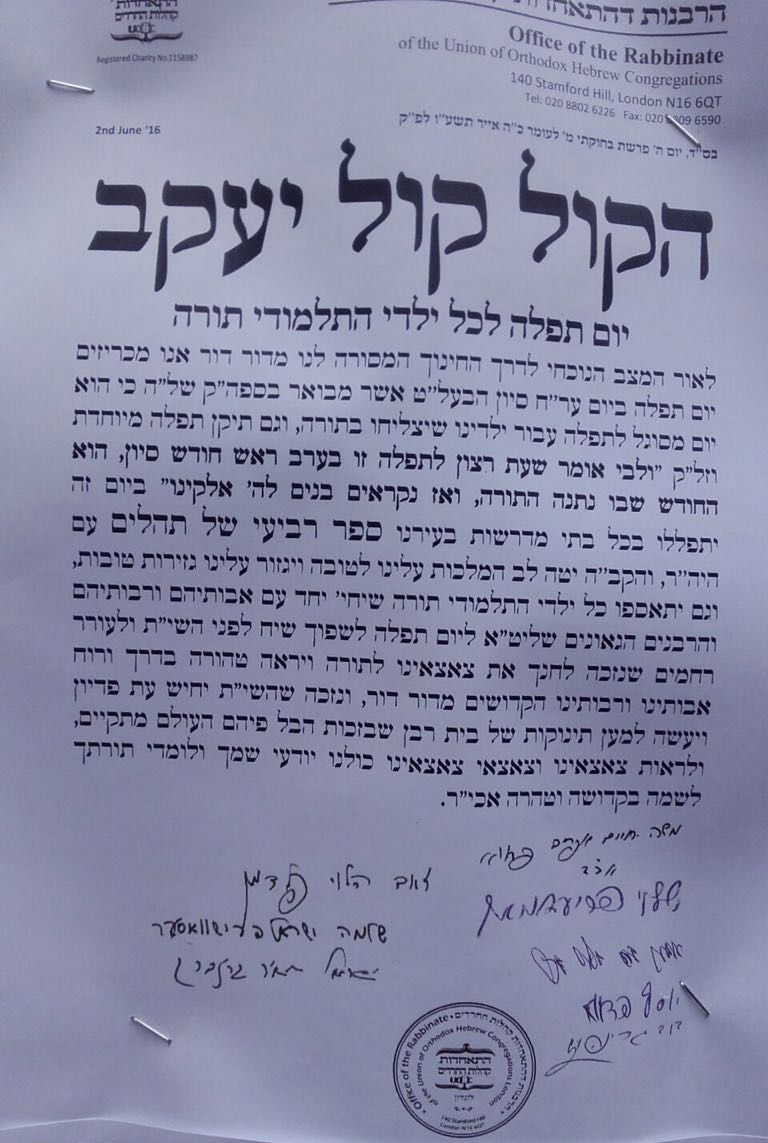 התאחדות
קהלות החרדים
Registered Charity No.1158987
הרבנות דהתאחדות
Office of the Rabbinate
of the Union of Orthodox Hebrew Congregations
140 Stamford Hill, London N16 6QT
Tel: 020 8802 6226 Fax: 020 8809 6590
2nd June '16
בס"ד, יום ה' פרשת בחוקתי מ' לעומר כ"ה אייר תשע"ו לפ"ק
הקול קול יעקב
יום תפלה לכל ילדי התלמודי תורה
לאור המצב הנוכחי לדרך החינוך המסורה לנו מדור דור אנו מכריזים
יום תפלה ביום ער"ח סיון הבעל"ט אשר מבואר בספה"ק של"ה כי הוא
יום מסוגל לתפלה עבור ילדינו שיצליחו בתורה, וגם תיקן תפלה מיוחדת
וזל"ק "ולבי אומר שעת רצון לתפלה זו בערב ראש חודש סיון, הוא
החודש שבו נתנה התורה, ואז נקראים בנים לה' אלקינו" ביום זה
יתפללו בכל בתי מדרשות בעירנו ספר רביעי של תהלים עם
היה"ר, והקב"ה יטה לב המלכות עלינו לטובה ויגזור עלינו גזירות טובות,
וגם יתאספו כל ילדי התלמודי תורה שיחי' יחד עם אבותיהם ורבותיהם
והרבנים הגאונים שליט"א ליום תפלה לשפוך שיח לפני השי"ת ולעורר
רחמים שנזכה לחנך את צאצאינו לתורה ויראה טהורה בדרך ורוח
אבותינו ורבותינו הקדושים מדור דור, ונזכה שהשי"ת יחיש עת פדיון
ויעשה למען תינוקות של בית רבן שבזכות הבל פיהם העולם מתקיים,
ולראות צאצאינו וצאצאי צאצאינו כולנו יודעי שמך ולומדי תורתך
לשמה בקדושה וטהרה אכי"ר.
משה חיים אפרים
זאב הלוי פלדמן
שלמה ישראל פרישוואסער
יוסף פדווא
Office of the Rabbinate
of the Union of Orthodox Hebrew Congregations London
הרבנות דהתאחדות קהלות החרדים
התאחדות
קהלות החרדים
לונדון
140 Stamford Hill
London N16 6QT